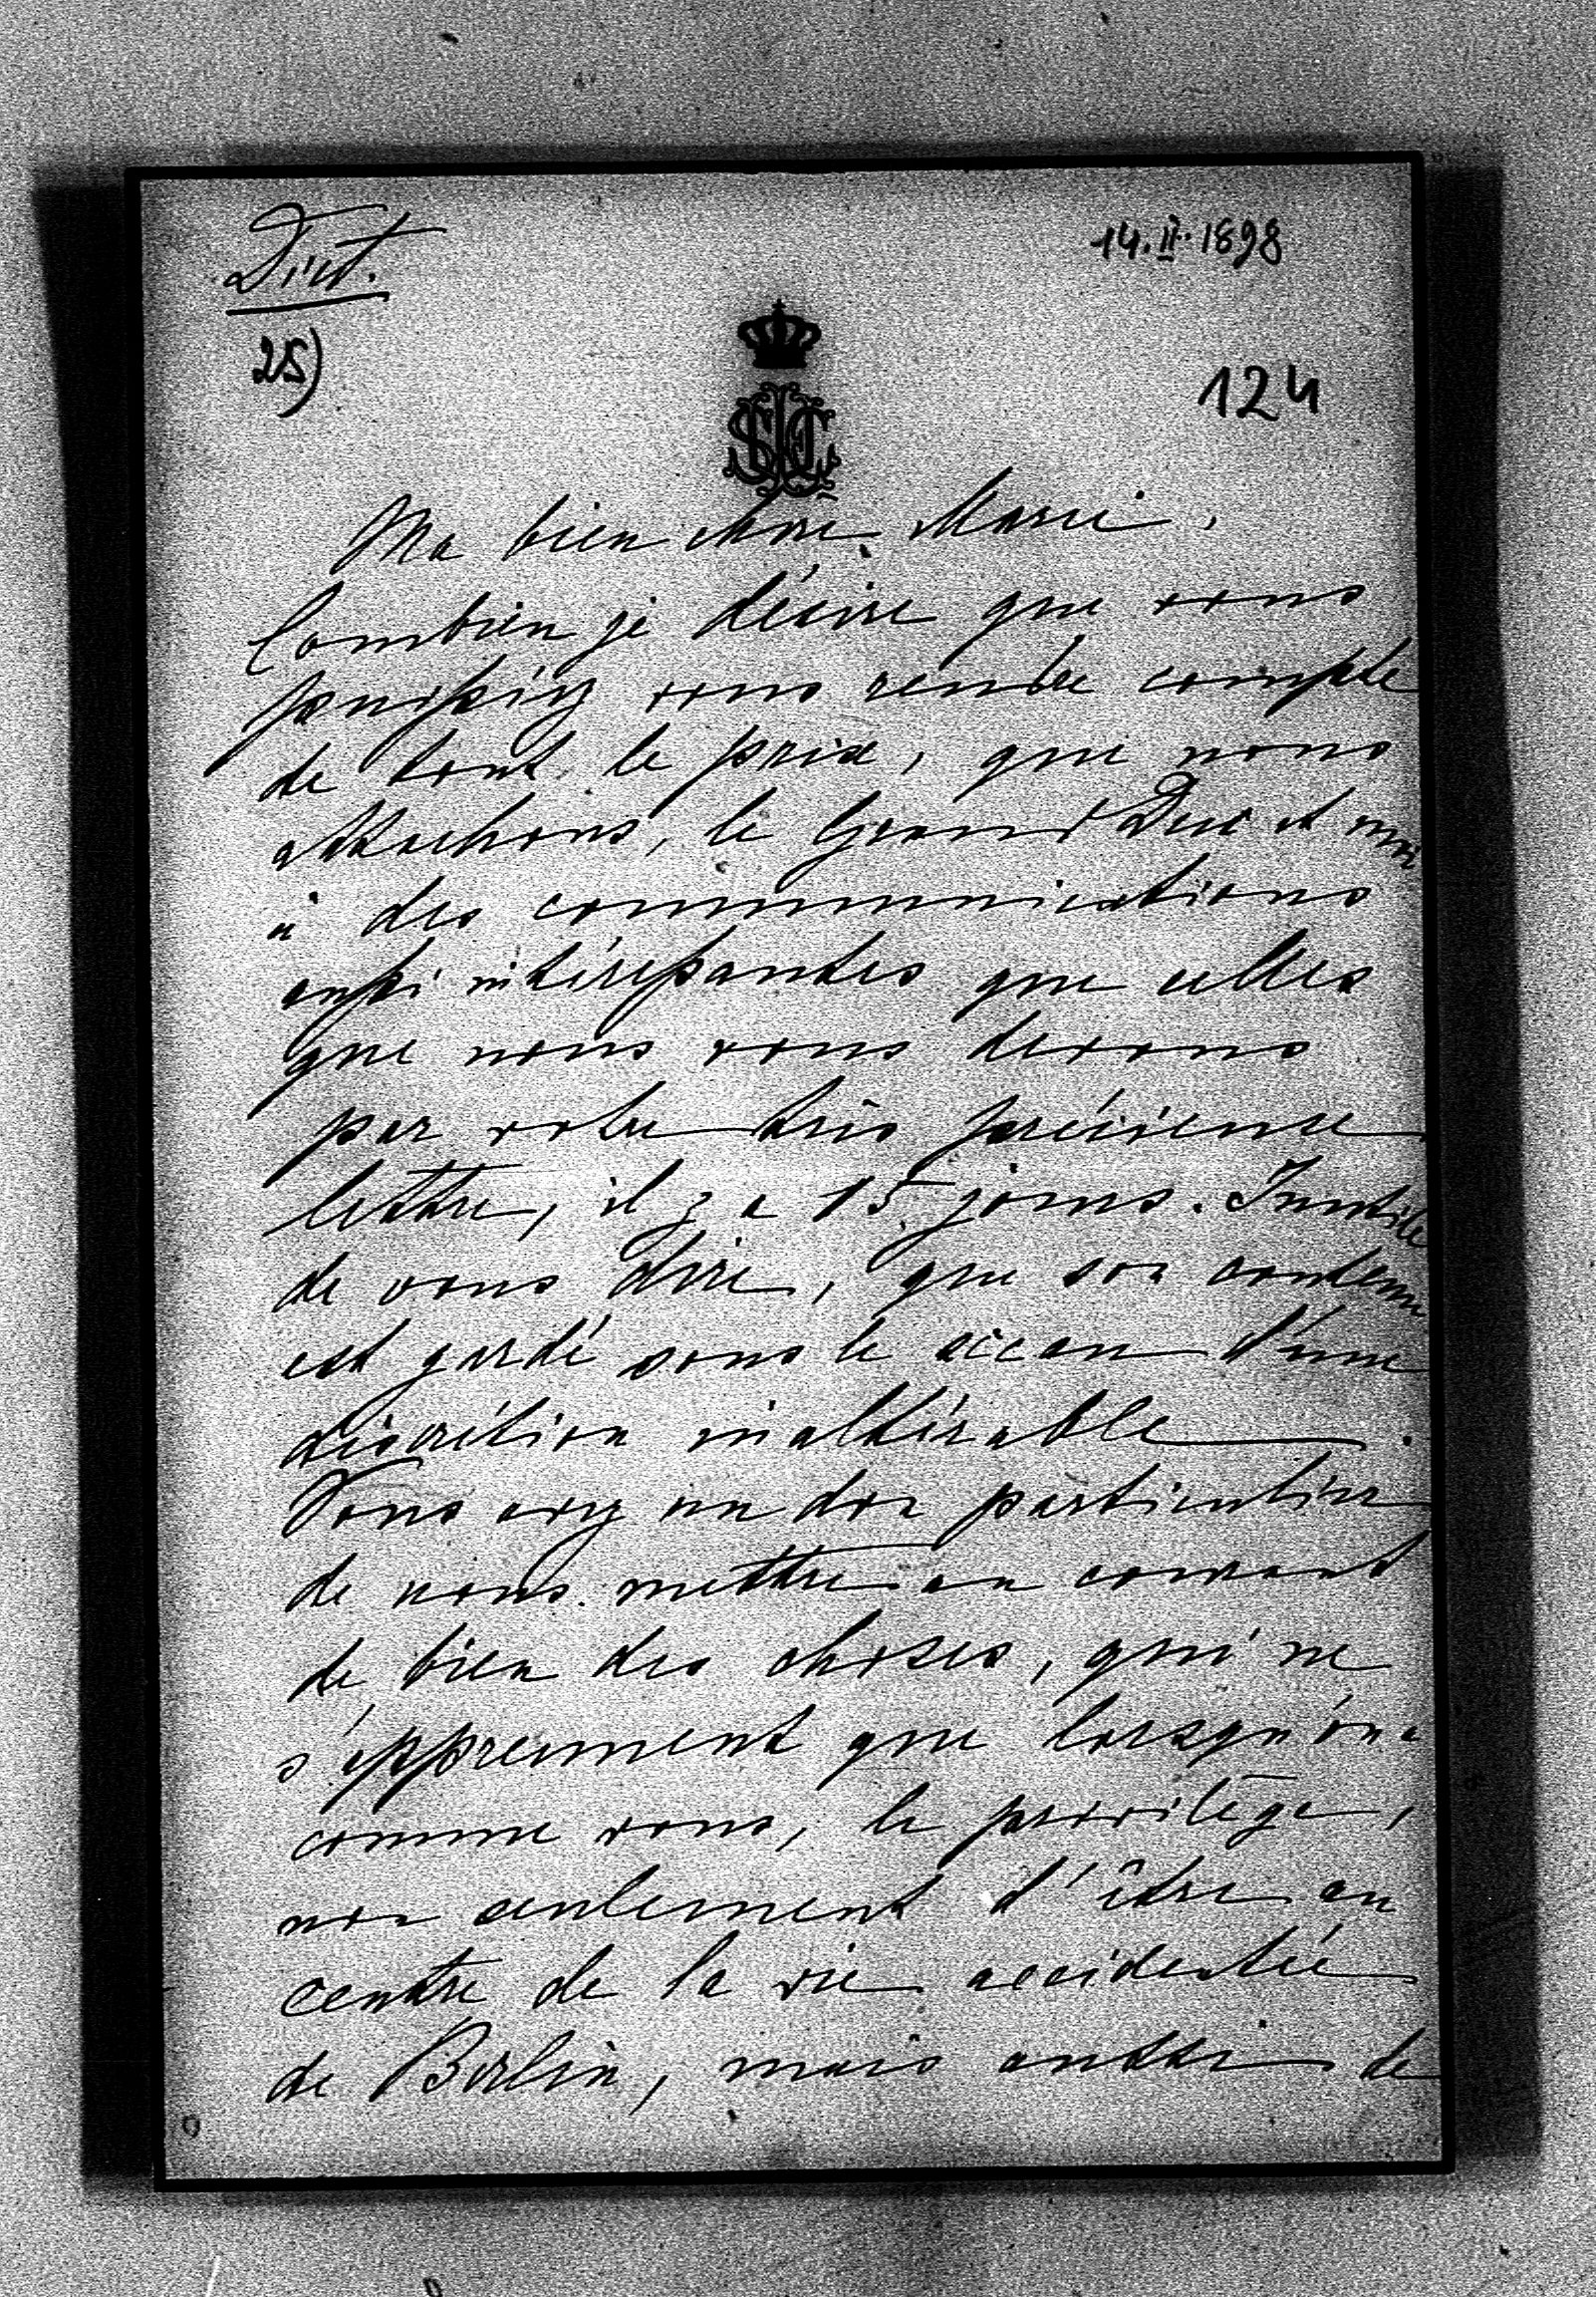 Dict.
14.II.1898
25)
124
Ma bien chère Marie,
Combien je désire que vous
pourriez vous rendre compte
de tout le prix, que nous
attachons, le Grand Duc et moi
à des communications
aussi intéressantes que celles
que nous vous devons
par votre très précieuse
lettre, il y a 15 jours. Inutile
de vous dire, que son contenu
est gardé sous le sceau d'une
discrétion inaltérable.
Vous avez un don particulier
de nous mettre au courant
de bien des choses, qui ne
s'apprennent que lorsqu'on a
comme vous, le privilège,
non seulement d'être au
centre de la vie accidentée
de Berlin, mais aussi de